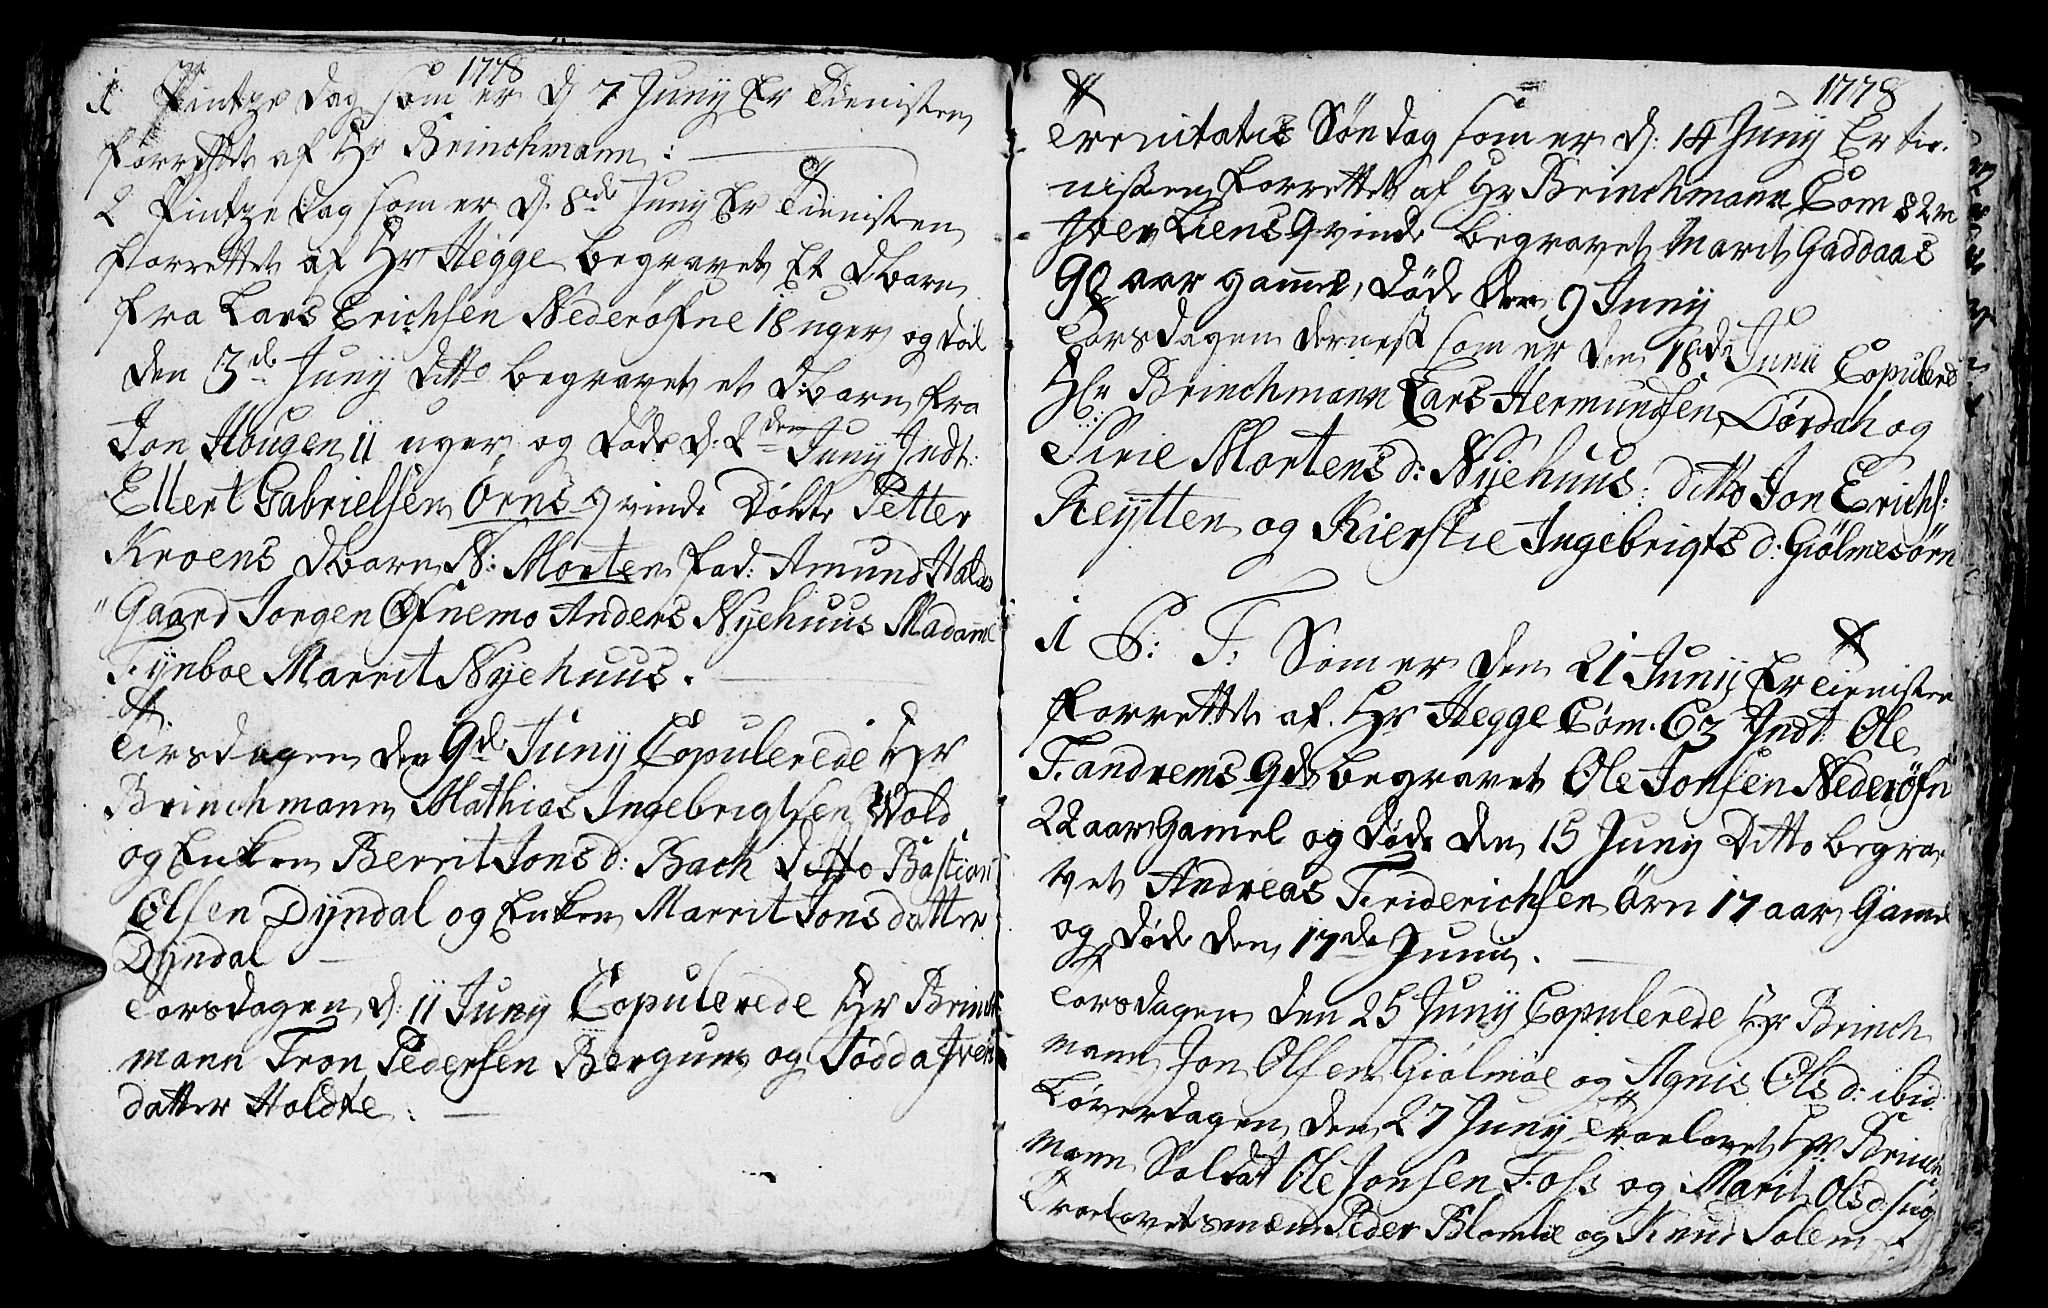 1778
1 Pintze Dag som er D 7 Juny Er Tienisten
forrettet af Hr Brinchmann :
2 Pintze Dag som er D. 8de Juny Er Tienisten
forrettet af Hr Hegge begravet Et Dbarn
fra Lars Erichsen Nederøfne 18 uger og død
den 3de Juny ditto begravet et Dbarn fra
Jon Hougen 11 uger og døde d. 2den Juny Indt:
Ellert Gabrielsen Örns qvinde Döbte Petter
Kroens Dbarn N: Morten fad: Amund Halds
Gaard Jorgen Øfnemo Anders Nyehuus Madame
Tynboe Marrit Nyehuus.
Tirsdagen den 9de Juny Copulerede Hr
Brinchmann Mathias Ingebrigtsen Wold
og Enken Berrit Jonsd: Bach ditto Bastian
Olsen Dyndal og Enken Marrit Jonsdatter
Dyndal
Torsdagen d: 11 Juny Copulerede Hr Brinch
mann Tron Pedersen Bergum og Todda Iver
datter Holdte.
1778
Trenitatis Söndag som er d: 14 Juny Er tie-
nisten forrettet af Hr Brinchmann Com 82
Iver Liens Qvinde begravet Marit Gaddaas
90 aar gammel, döde den 9 Juny
Torsdagen dernest som er den 18de Junii Copulered
Hr Brinchmann Lars Hermundsen Dørdah og
Sirie Mortensd: Nyehuus: ditto Jon Erichs:
Reytten og Kierstie Ingebrigtsd: Giølmesörn
1 S: T: Som er den 21 Juny Er Tienisten
forrettet af. Hr Hegge Com. 63 Indt: Ole
Tandrems Qde begravet Ole Jonsen Nederöfn
22 aar Gamel og døde den 15 Juny Ditto begra-
vet Andreas Friderichsen Örn 17 aar Gamel
og døde den 17de Junii.
Torsdagen den 25 Juny Copulerede Hr Brinch
mann Jon Olsen Giølmøe og Agnis Olsd: ibid:
Løverdagen den 27 Juny Troelovet Hr Brinch
mann Soldat Ole Jonsen Foss og Marit Olsd:
Troelovetsmænd Peder Blomlie og Knud Solem